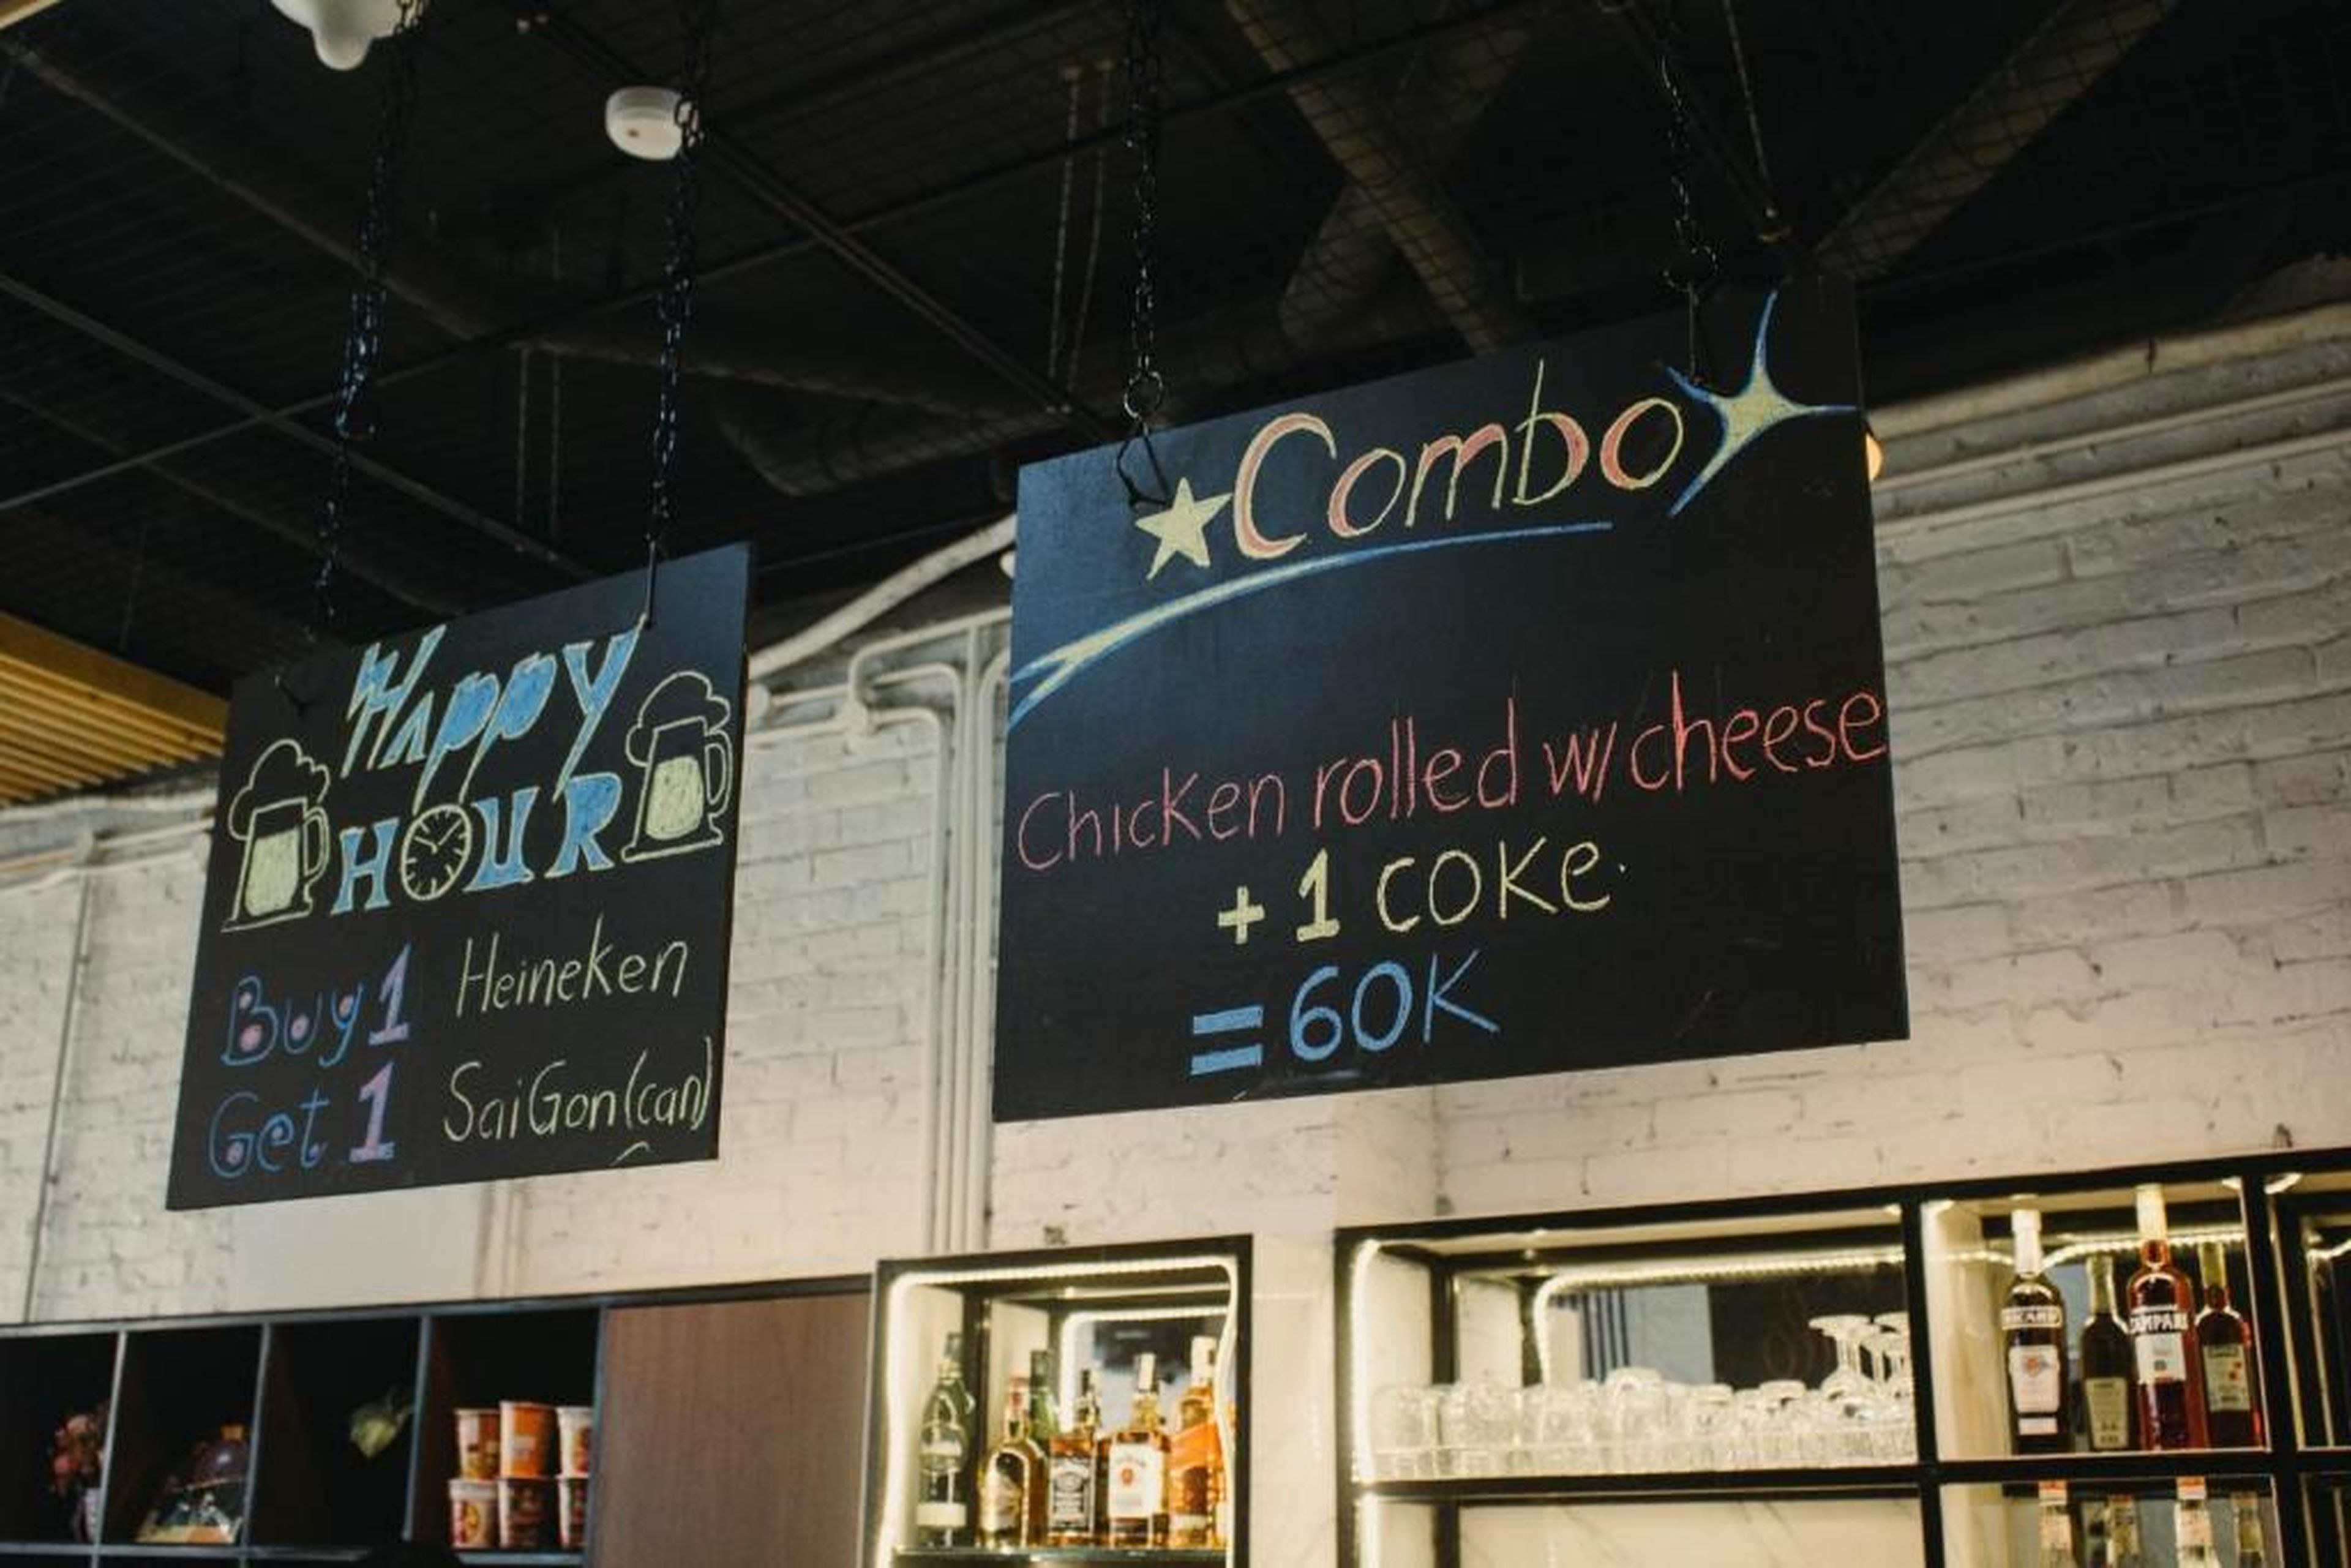 Happy
HOUR
Buy 1 Heineken
Get 1 SaiGon (can)
Combo
Chicken rolled w/ cheese
+ 1 COKE.
= 60K
CAMPARI